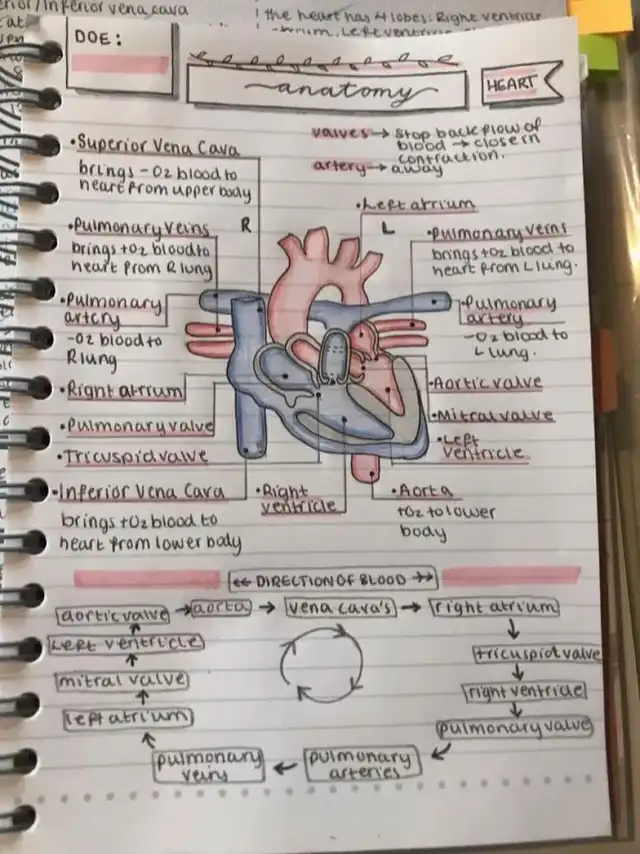 the heart has 4 lobes: Right ventricle
DOE:
anatomy
HEART
valves → stop backflow of
blood → close in
contraction.
artery → away
•Superior Vena Cava
brings -O2 blood to
heart from upper body
•Pulmonary veins
brings +O2 blood to
heart from R lung
•Pulmonary
artery
-O2 blood to
R lung
•Right atrium
•Pulmonary valve
•Tricuspid valve
•Inferior Vena Cava
brings +O2 blood to
heart from lower body
R
L
•Left atrium
•Pulmonary veins
brings +O2 blood to
heart from L lung.
•Pulmonary
artery
-O2 blood to
L lung.
•Aortic valve
•Mitral valve
•Left
ventricle
•Right
ventricle
•Aorta
+O2 to lower
body
←← DIRECTION OF BLOOD →→
aortic valve → aorta → vena cava's → right atrium
tricuspid valve
right ventricle
pulmonary valve
pulmonary
arteries
pulmonary
veins
left atrium
mitral valve
left ventricle